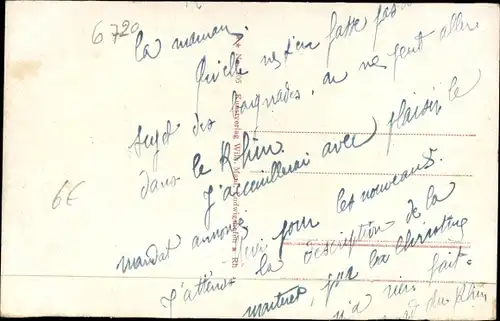 6720
la maman.
Qu'elle ne s'en fasse pas au
sujet des baignades, on ne peut aller
dans le Rhin.
J'accueillerai avec plaisir le
mandat annoncé pour les nouveaux.
J'attends la description de la
par la Christine
n'a rien fait
du Rhin
6€
Kunstverlag Wilh. Ludwigshafen a. Rh.